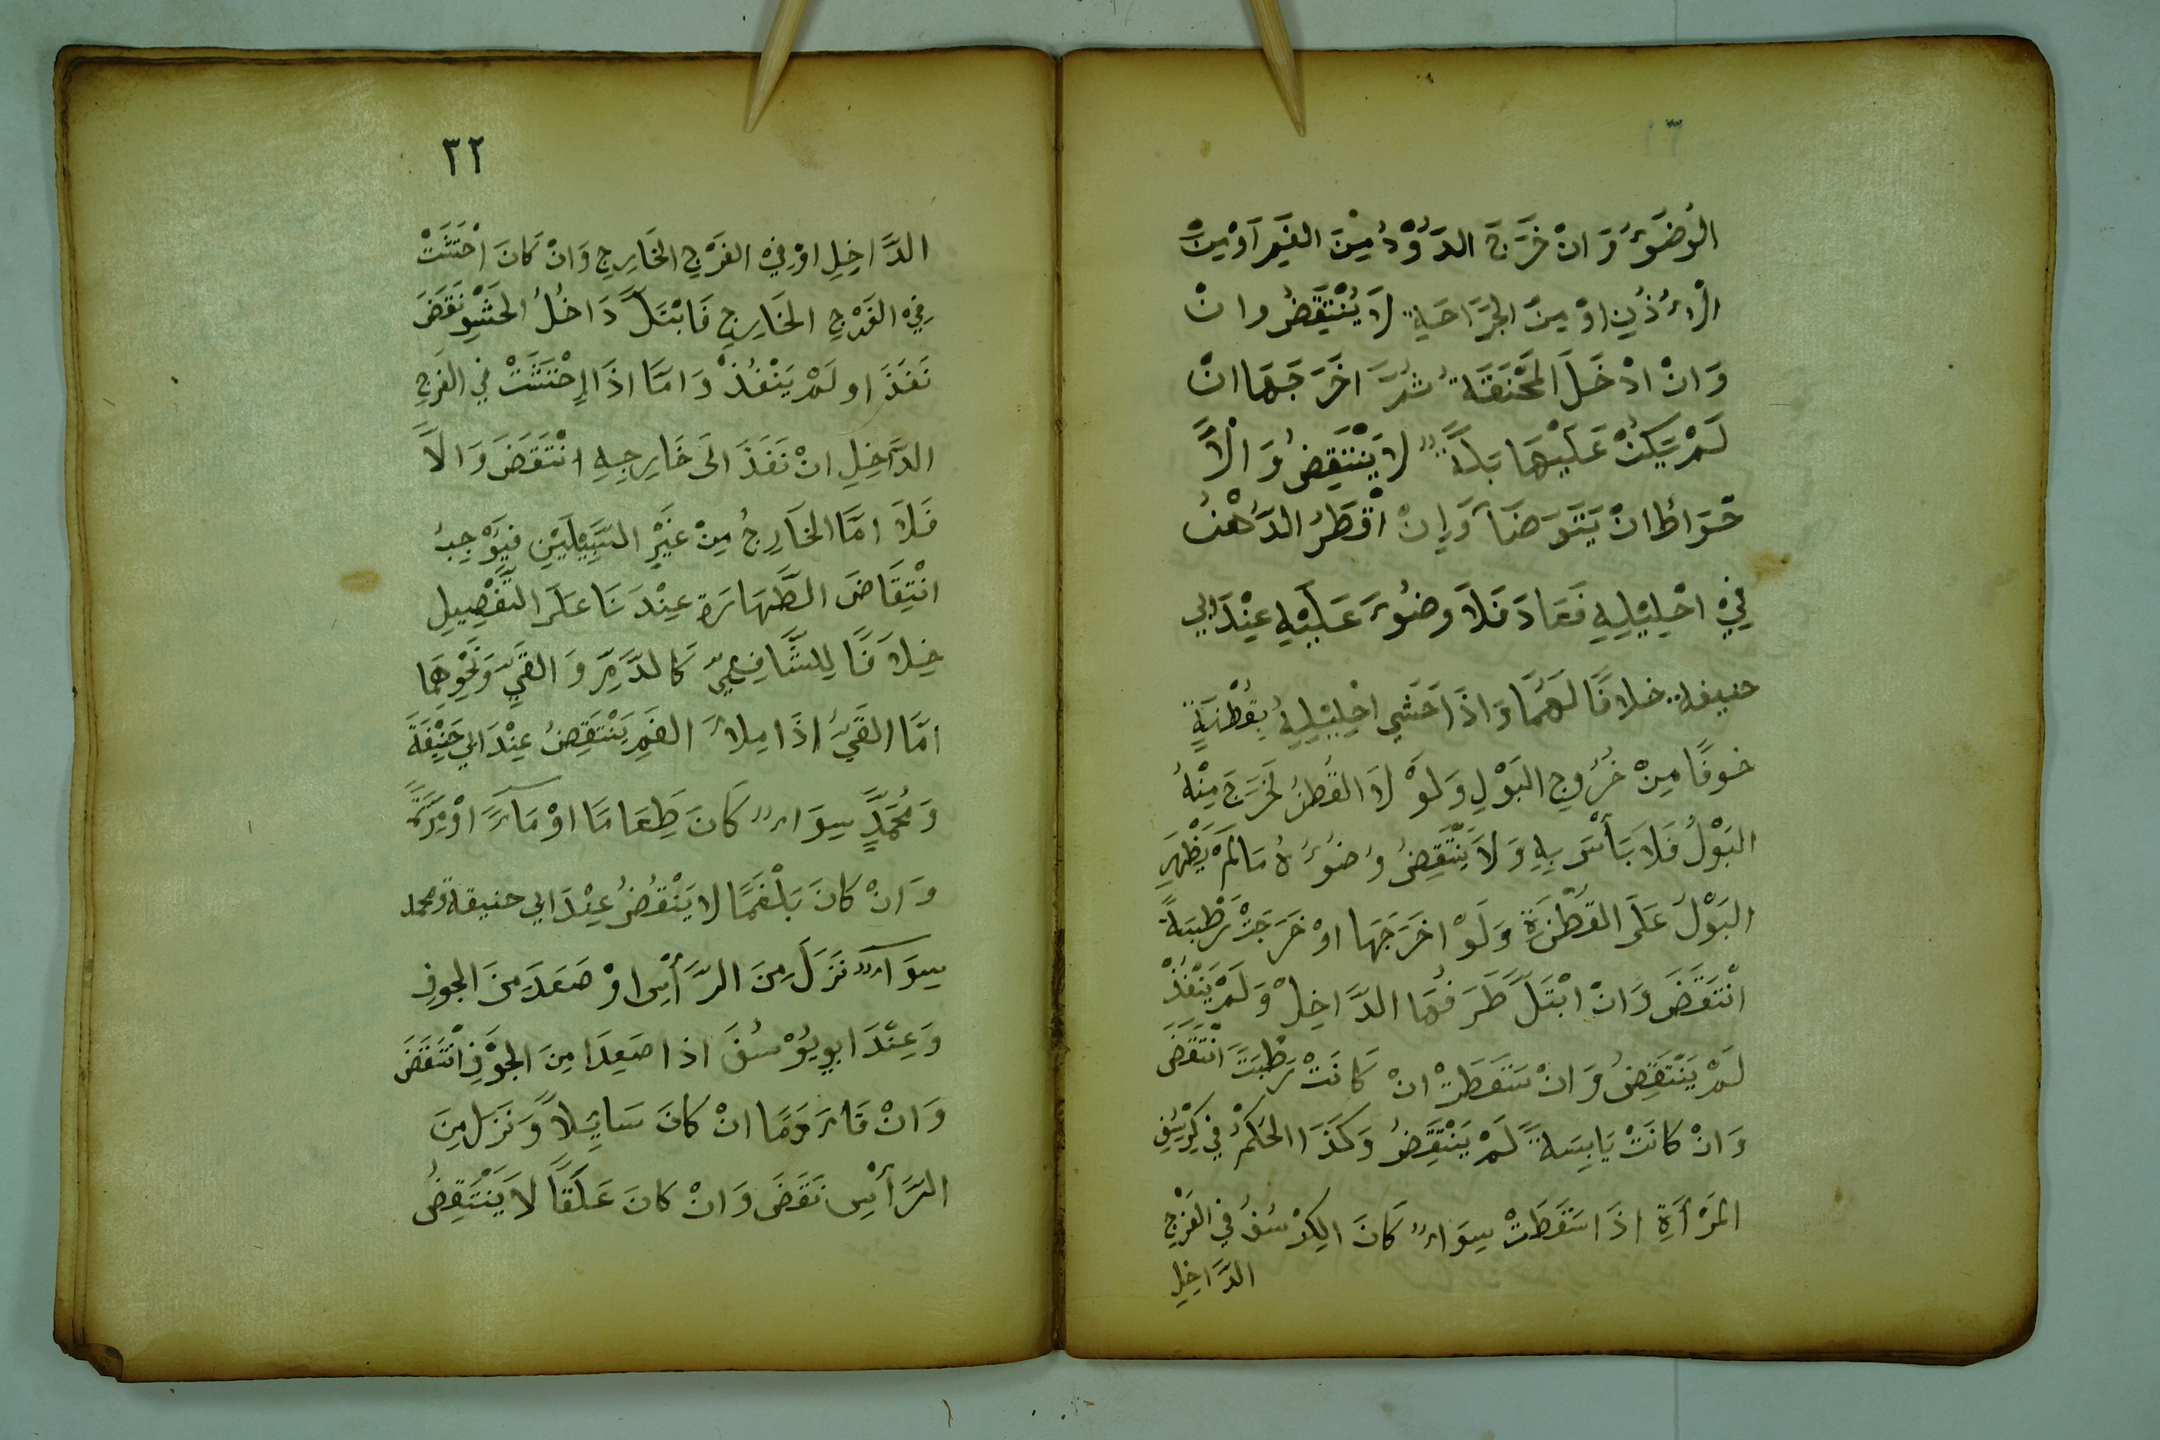 الوُضُوءُ وَانْ خَرَجَ الدُّوْدُ مِنَ الفَمِ اَوْ مِنْ
الْاُذُنِ اوْ مِنَ الجَرَاحَةِ لَا يَنْتَقِضُ وانْ
وَانْ ادْخَلَ المِحْنَقَةَ ثُمَّ اخَرَجَهَا انْ
لَمْ يَكُنْ عَلَيْهَا بَلَّةٌ لا يَنْتَقِضُ وَالْاَ
حْوَاطُ انْ يَتَوَضَأَ وَاِنْ اقْطَرَ الدُّهْنُ
فِيْ احْلِيْلِهِ فَعَادَ فَلَا وضُوءَ عَلَيْهِ عِنْدَ ابي
حنيفة خلافًا لَهُمَا وَاذَا حَشي احْلِيْلِهُ بِقُطْنَةٍ
خوفًا مِنْ خُرُوجِ البَوْلِ وَلَوْ لَا القُطنُ لَخَرَجَ مِنْهُ
البَوْلُ فَلَا بَأْسَ بِهِ وَلَا يَنْتَقِضُ وُضُوءُهُ مَا لَمْ يَظْهَرِ
البَوْلُ عَلَى القُطْنَةِ وَلَوْ اخَرَجَهَا اوْ خَرَجَتْ رَطْبَةً
انْتَقَضَ وَانْ ابْتَلَّ طَرَفُهَا الدَّاخِلْ وَلَمْ يَنْفُذْ
لَمْ يَنْتَقِضُ وَانْ سَقَطَتْ انْ كَانَتْ رَطْبَتً انْتَقَضَ
وَانْ كانَتْ يَابِسَةً لَمْ يَنْتَقِضُ وَكَذَا الحُكْمُ فِي كُرْسُفِ
المَرْأَةِ اذَا سَقَطَتْ سِوَاءٌ كَانَ الكِرْسُفُ فِي الفَرْجِ
الدَّاخِلِ
٣٢
الدَّاخِلِ اوْ فِيْ الفَرْجِ الخَارِجِ وَانْ كَانَ احْتَشَتْ
فِيْ الفَرْجِ الخَارِجِ فَابْتَلَّ دَاخُلُ الحَشْوِ نَقَضَ
نَفَذَ او لَمْ يَنْفُذْ وَامَّا اذَا اِحْتَشَتْ فِي الفَرْجِ
الدَّاخِلِ انْ نَفَذَ الَى خَارِجِهِ انْتَقَضَ وَالَّا
فَلَا امَّا الخَارِجُ مِنْ غَيْرِ السَّبِيْلَيْنِ فيُوْجِبُ
انْتِقَاضَ الطَّهَارَةِ عِنْدَنَا عَلَى التَّفْصِيلِ
خِلَافًا لِلشَّافِعِيِّ كَالدَّمِ وَالقَيِّ وَنَحْوِهِمَا
امَّا القَيُّ اذَا مِلاءَ الفَمِ يَنْتَقِضُ عِنْدَ ابِي حَنِيْفَةَ
وَمُحَمَّدٍ سِوَاءٌ كَانَ طِعَامًا اوْ مَآءً اوْ مِرَّةً
وَانْ كانَ بَلْغَمًا لا يَنْقُضُ عِنْدَ ابي حنيفة ومحمد
سِوَآءٌ نَزَلَ مِنَ الرَّأْسِ اوْ صَعَدَ مِنَ الجوفِ
وَعِنْدَ ابو يُوْسُفَ اذا صَعِدَا مِنَ الجَوْفِ انْتَقَضَ
وَانْ قَاءَ دَمًا انْ كانَ سَائِلاً وَنَزَلَ مِنَ
الرَّأْسِ نَقَضَ وَانْ كانَ عَلَقًا لَا يَنْتَقِضُ